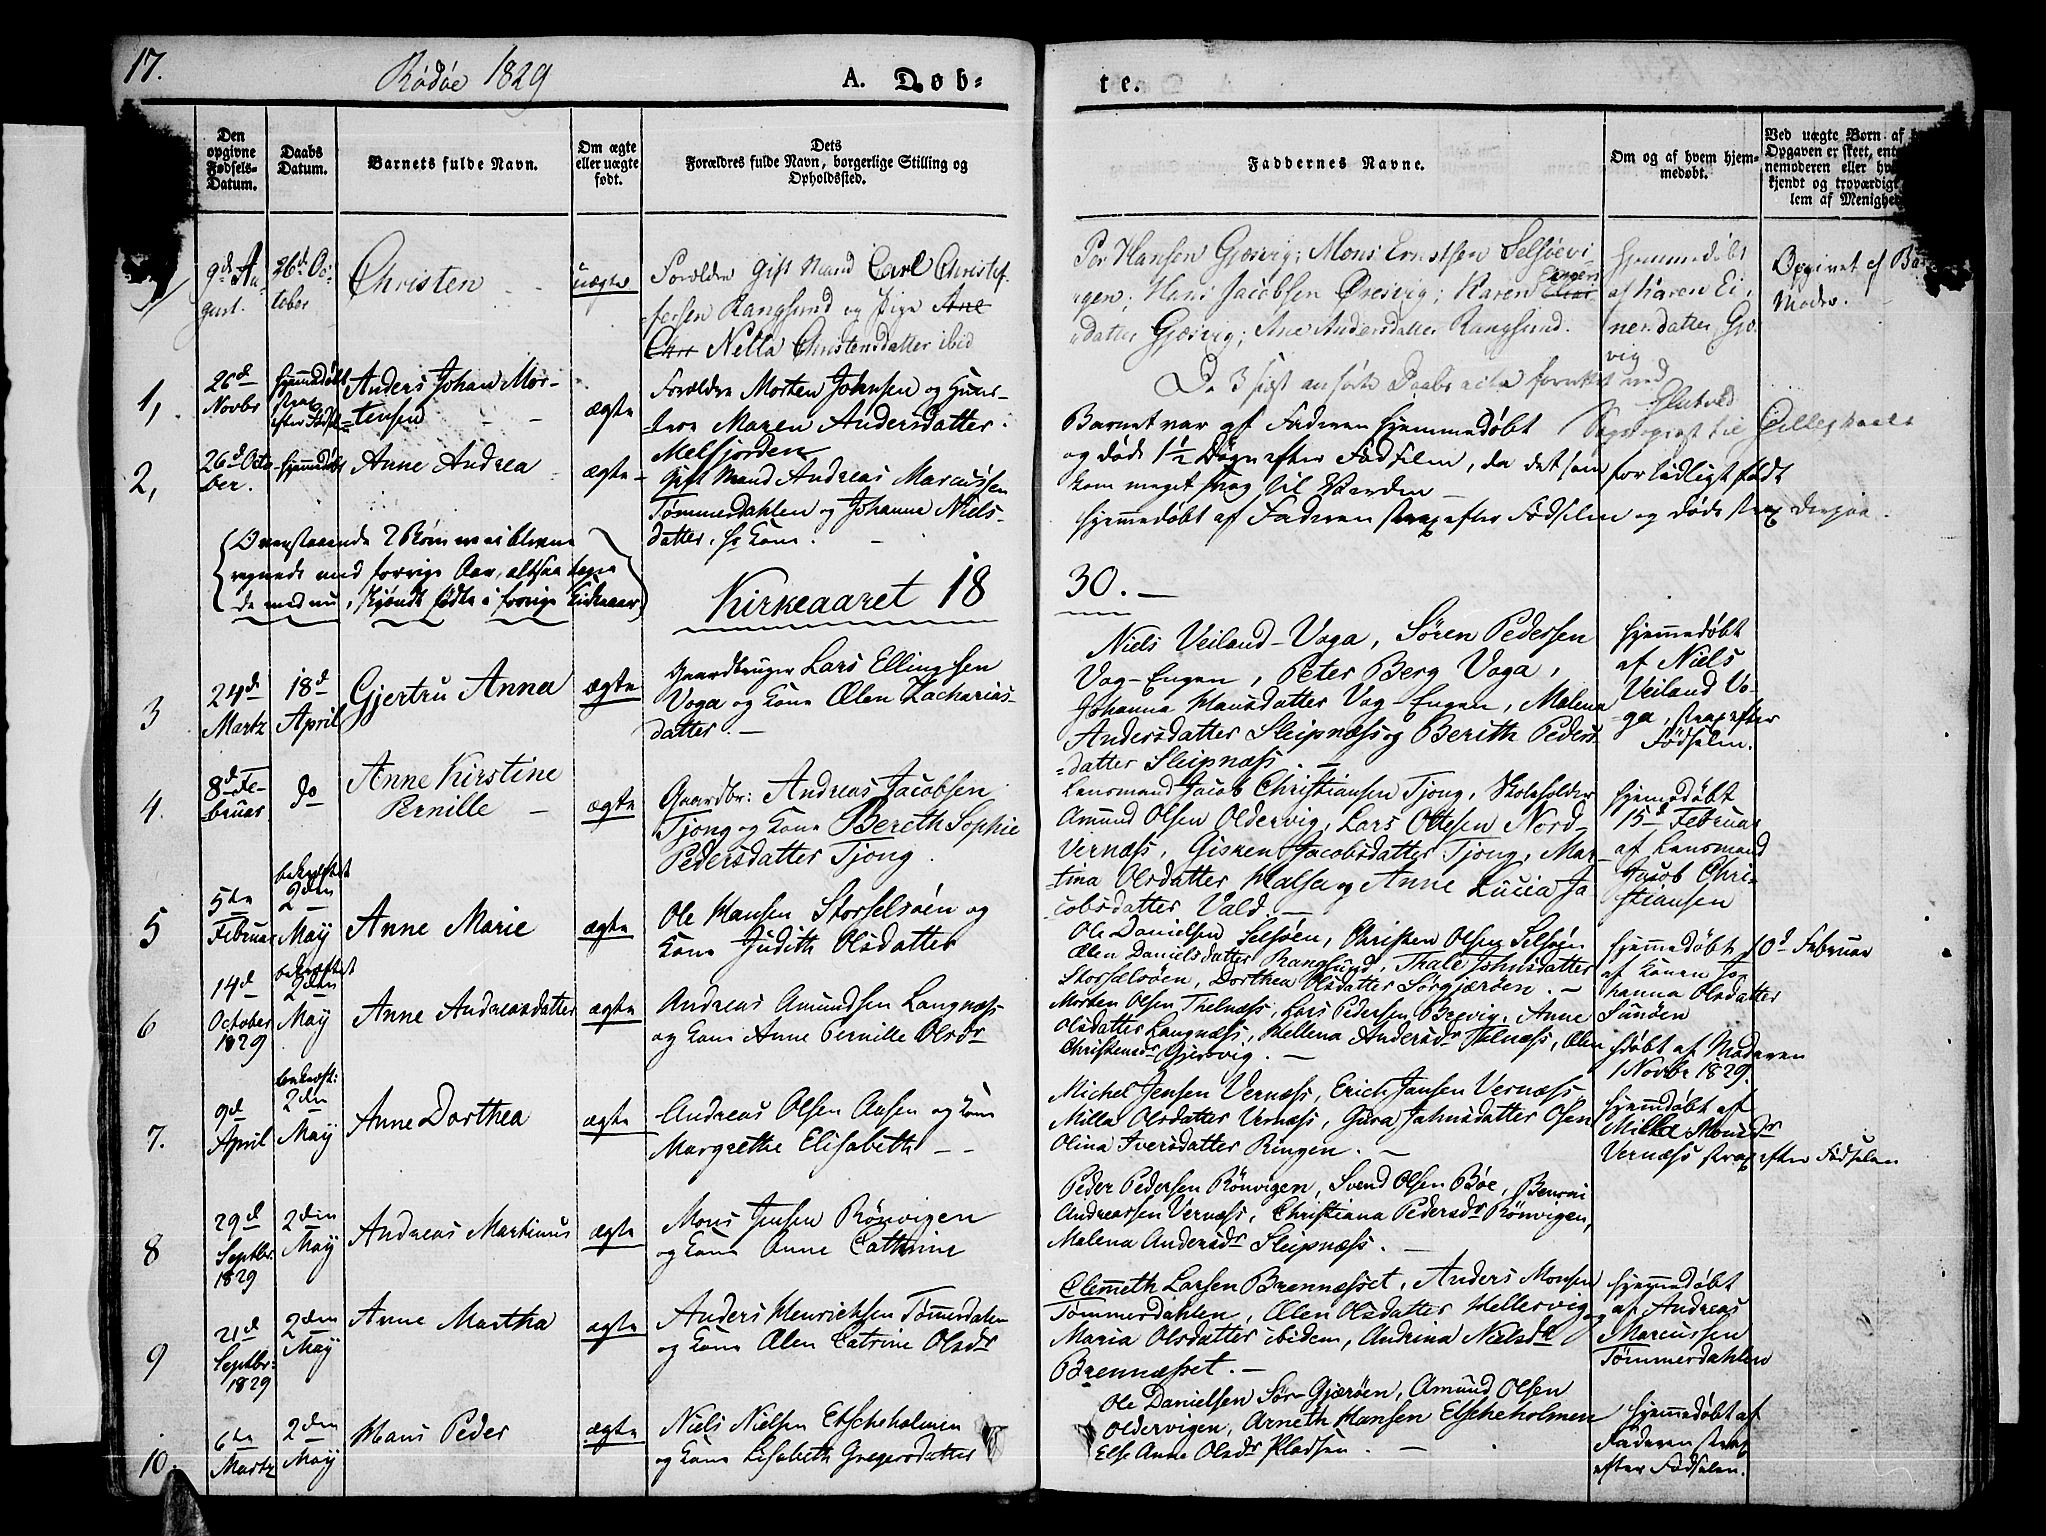 17.
Rödöe 1829
A. Døb-
te.
Den opgivne Fødsels-Datum.
Daabs Datum.
Barnets fulde Navn.
Om ægte eller uægte født.
Dets
Forældres fulde Navn, borgerlige Stilling og
Opholdssted.
Faddernes Navne.
Om og af hvem hjem-
medøbt.
Ved uægte Børn af
Opgaven er skeet, ent
nemoderen eller hv
kjendt og troværdigt
lem af Menighed
9de Au-
gust.
26d. Oc-
tober
Christen
uægte
Forældre gift Mand Carl Christof-
fersen Rangsund og Pige Ane
Chri Nella Christensdatter ibid
Per Hansen Gjæsvig; Mons Erntsen Selsöevi-
gen; Hans Jacobsen Öresvig; Karen Einers
datter Gjæsvig; Ane Andersdatter Rangsund.
Hjemmedöbt
af Karen Ei-
nersdatter Gjæ
vig
Opgivet af
Moder.
De 3 sidst anförte Daabsacta forrettet ved
1,
26d
Novbr
Hjemmedöbt
strax
efter Föds
Anders Johan Mor-
tensen
ægte
Forældre Morten Johnsen og Hust-
Maren Andersdatter.
Melfjorden
Barnet var af Faderen hjemmedöbt
og döde 1½ Dögn efter Födselen, da det som for tidligt födt
kom meget svag til Verden
2,
26d Octo
ber.
Hjemmedöbt
Anne Andrea
ægte
Gift Mand Andreas Marcussen
Tömmerdahlen og Johanna Niels-
datter. Hs Kone.
Hjemmedöbt af Faderen strax efter Födselen og döde strax derpaa.
Ovenstaaende 2 Börn ere ei blevne
regnede med forrige Aar, altsaa tagne
de med nu, skjöndt födte i forrige Kirkeaar
Kirkeaaret 18
30.
3
24d
Martz
18d
April
Gjertru Anna
ægte
Gaardbruger Lars Ellingsen
Voga og Kone Ælen Zacharias-
datter.
Niels Veiland-Voga, Sören Pedersen
Vog-Engen, Peter Berg Voga,
Johanna Hansdatter Vog-Engen, Malena
Andersdatter Sleipnæss og Berith Peders-
datter Sleipnæss.
Hjemmedöbt
af Niels
Veiland Vo-
ga, strax efter
Födselen.
4.
8d Fe-
bruar
do
Anne Kirstine
Pernille
ægte
Gaardbr: Andreas Jacobsen
Tjong og Kone Bereth Sophie
Pedersdatter Tjong.
Lensmand Jacob Christiansen Tjong, Skoleholder
Amund Olsen Oldervig, Lars Ottesen Nord-
Vernæss, Gisken Jacobsdatter Tjong, Mar-
tina Olsdatter Halsa og Anne Lucia Ja
cobsdatter Vald.
Hjemmedöbt
15d Februar
af Lensmand
Jacob Chri-
stiansen
5
5te
Februar
bekræftet
2den
May
Anne Marie
ægte
Ole Hansen Storselsöen og
Kone Judith Olsdatter
Ole Danielsen Selsöen, Christen Olsen Selsöen
Ælen Danielsdatter Rangsund, Thale Johnsdatter
Storselsöen, Dorthea Olsdatter Sörgjæröen.
Hjemmedöbt 10d Februar
af Konen Jo-
hanna Olsdatter
Sundöen
6
14d
October
1829
bekræftet
2den
May
Anne Andreasdatter
ægte
Andreas Amundsen Langnæss
og Kone Anne Pernille Olsdr
Morten Olsen Thelnæss, Lars Pedersen Bæsvig, Anne
Olsdatter Langnæss, Hellena Andersdr Thelnæss, Ælen
Christensdr Gjersvig.
Hdöbt af Moderen
1 Novbr 1829.
7.
9d
April
bekræft:
2den
May
Anne Dorthea
ægte
Andreas Olsen Aasen og Kone
Margrethe Elisabeth
Michel Jensen Vernæss, Erich Jansen Vernæss,
Milla Olsdatter Vernæss, Gura Jahnsdatter Osen
Olina Iversdatter Ringen.
Hjemmedöbt af
Milla Monsdr
Vernæss strax efter Födselen
8
29d
Septbr.
1829
2den
May
Andreas Martinus
ægte
Mons Jensen Rönvigen
og Kone Anne Cathrine
Peder Pedersen Rönvigen, Svend Olsen Böe, Benoni
Andreassen Vernæss, Christiana Pedersdr Rönvigen,
Malena Andersdr Sleipnæss.
9
21d
Septbr:
1829
2den
May
Anne Martha
ægte
Anders Henrichsen Tömmerdalen
og Kone Ælen Catrine Olsdr
Clemeth Larsen Brennæsset, Anders Monsen
Tömmerdahlen, Ælen Olsdatter Hellervig og
Maria Olsdatter ibidem, Andrina Nielsdr
Brennæsset.
Hjemmedöbt
af Andreas
Marcussen
Tömmerdahlen
10.
6te
Martz
2den
May
Hans Peder
ægte
Niels Nielsen Esscheholmen
og Kone Lisabeth Gregersdatter
Ole Danielsen Sör-Gjæröen, Amund Olsen
Oldervigen, Arneth Hansen Esscheholmen
Else Anne Olsdr Pladsen.
Hjemmedöbt af
Faderen strax
efter Födselen.